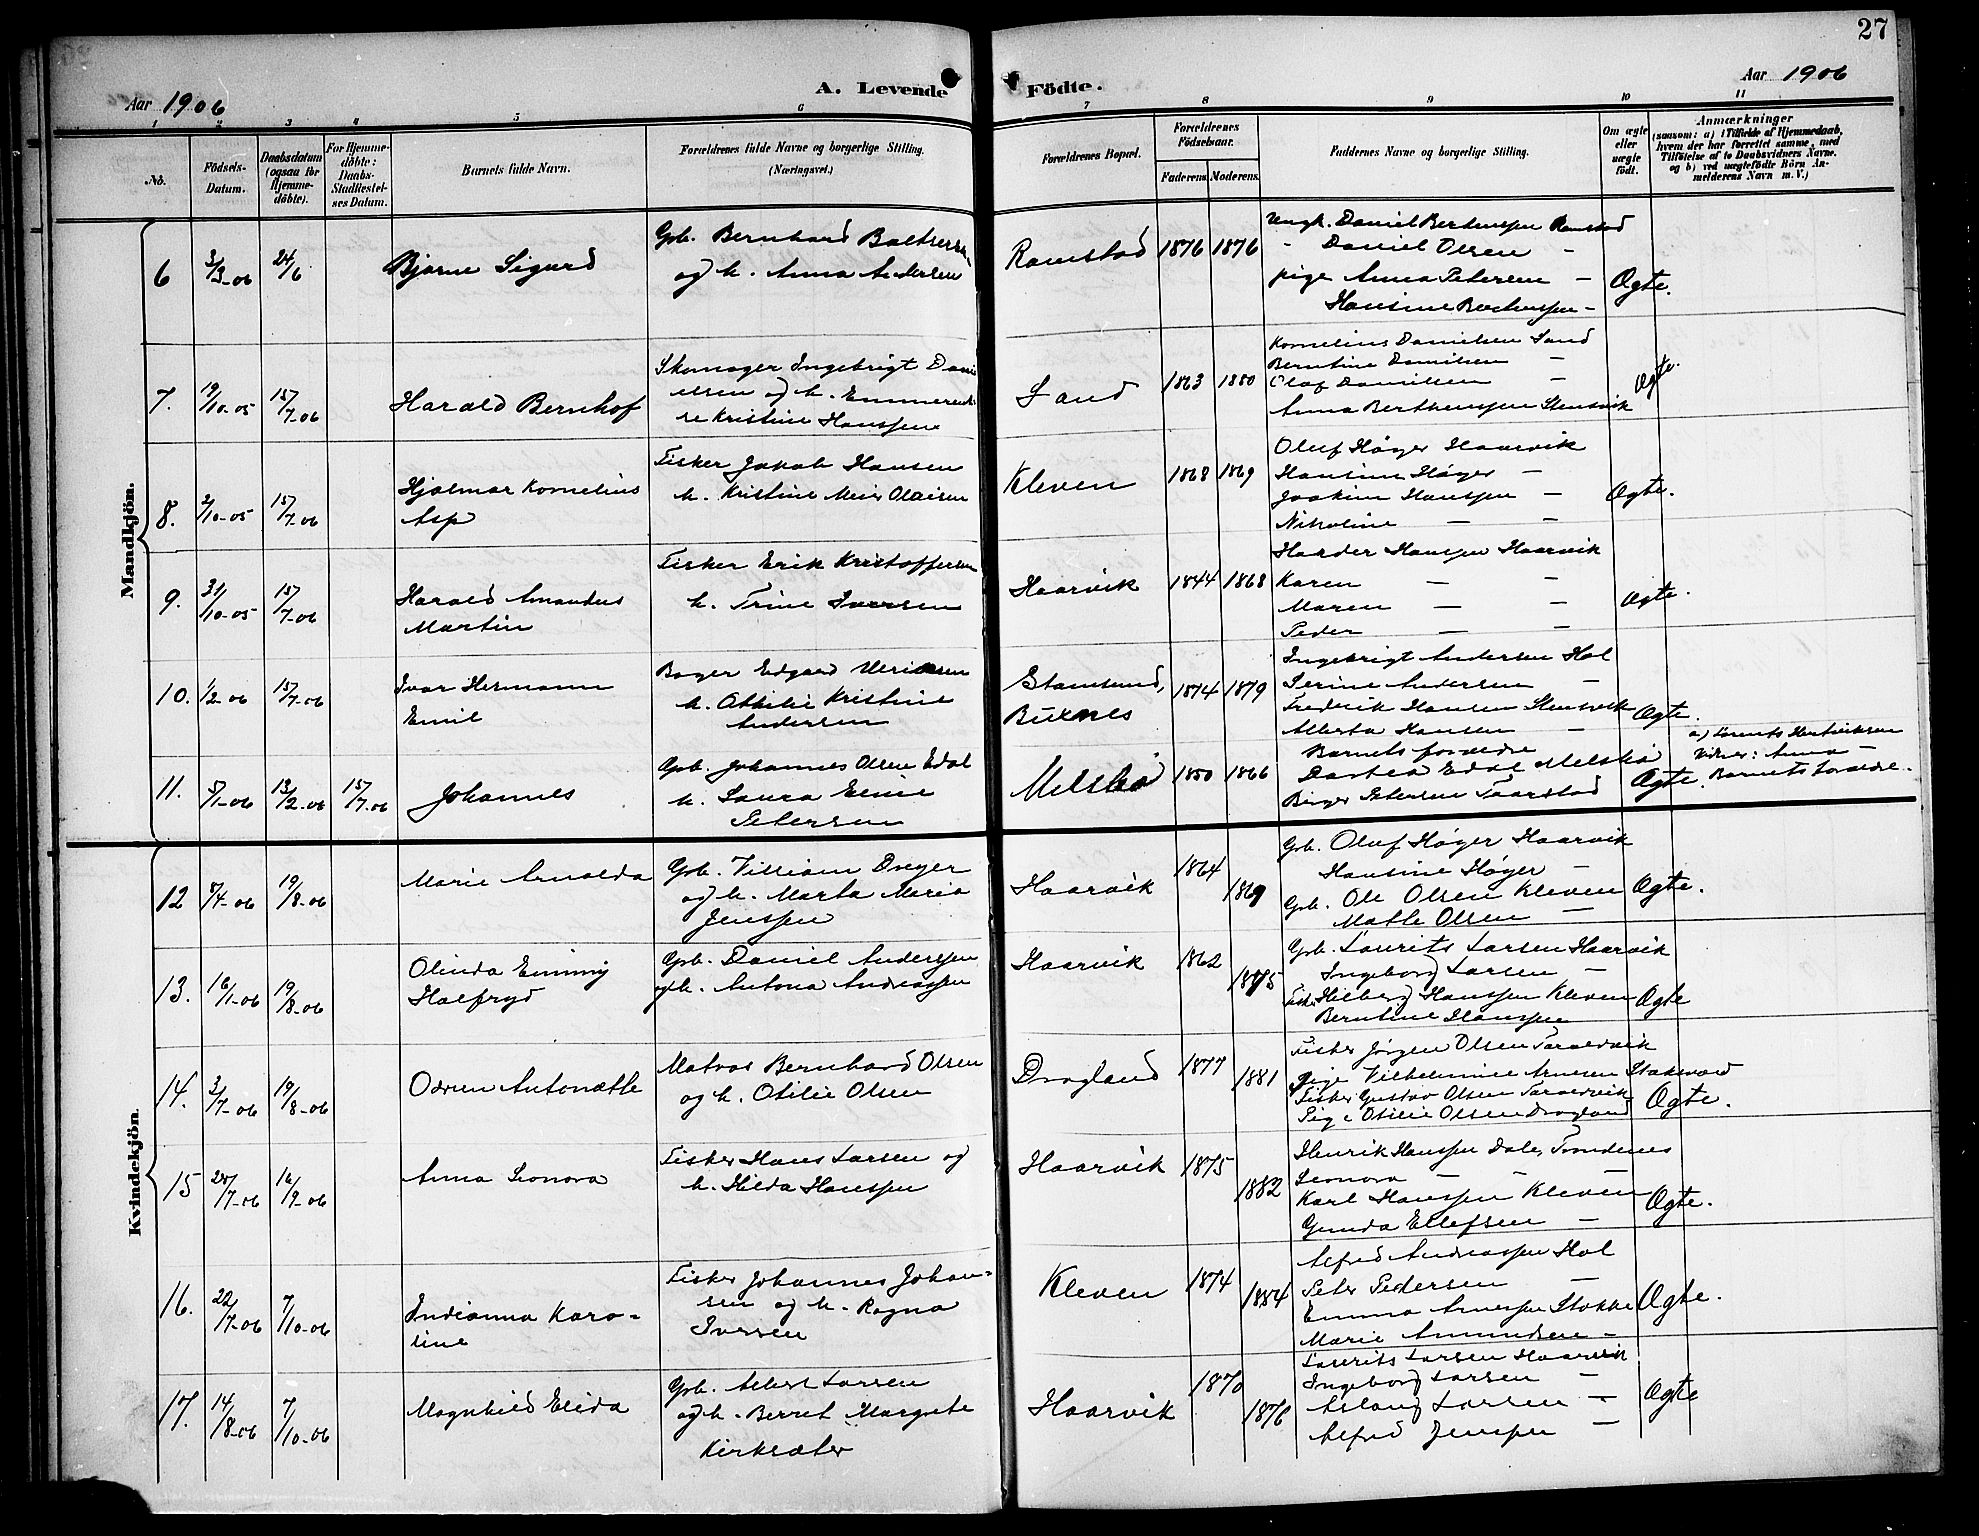 27
Aar 1906
A. Levende Födte.
Aar 1906
1 2 3 4 5 6 7 8 9 10 11
No.
Födsels-Datum.
Daabsdatum (ogsaa for Hjemme-döbte).
For Hjemme-döbte: Daabs-Stadfæstel-ses Datum.
Barnets fulde Navn.
Forældrenes fulde Navne og borgerlige Stilling. (Næringsvei.)
Forældrenes Bopæl.
Forældrenes Födselsaar.
Faderens. Moderens.
Faddernes Navne og borgerlige Stilling.
Om ægte eller uægte födt.
Anmærkninger
(saasom: a) i Tilfælde af Hjemmedaab,
hvem der har forrettet samme, med
Tilföielse af to Daabsvidners Navne.
og b) ved uægtefödte Börn An-
melderens Navn m. V.)
Mandkjön.
6 3/3-06 24/6 Bjarne Sigurd
Gbr. Bernhard
og h. Anna Andersen
Ramstad 1876 1876
Ungk. Daniel Berthenssen Ramstad
" Daniel Olsen -
pige Anna Petersen -
Hansine Berthenssen -
Ægte.
7. 19/10-05 15/7-06 Harald Bernhof
Skomager Ingebrigt Dani
elsen og h. Emmerenti
Kristine Hanssen
Sand 1863 1880
Kornelius Danielsen Sand
Berntine Danielsen -
Olaf Danielsen -
Anna Berthenssen Stensvik
Ægte.
8. 2/10-05 15/7-06 Hjalmar Kornelius
Asp
Fisker Jakob Hansen
h. Kristine Olaisen
Kleven 1868 1869
Oluf Høger Haarvik
Hansine Høger -
Joakim Hanssen -
Nikoline - -
Ægte.
9. 31/10-05 15/7-06 Harald Amandus
Martin
Fisker Erik Kristoffersen
h. Trine Iversen
Haarvik 1844 1868
Hanssen Haarvik
Karen - -
Maren - -
Peder - -
Ægte.
10. 1/2-06 15/7-06 Ivar Hermann
Emil
Bager Edgard Ulriksen
h. Othilie Kristine
Andersen
Stamsund,
Buxnes
1874 1879
Ingebrigt Andersen Hol
Serine Andersen -
Fredrik Hansen Stensvik
Alberta Hansen -
Ægte.
11. 5/1-06 13/2-06 15/7-06 Johannes
Gbr. Johannes Olsen Edal
h. Laura Elise
Petersen
Melsbø 1850 1866
Barnets forældre
Dortea Edal Melsbø
Birger Petersen Taarstad
Ægte.
a) Lorents Hentriksen
Vidner: Anna -
Barnets forældre.
Kvindekjön.
12 5/4-06 19/8-06 Marie Arnolda
Gbr. Villiam Dreyer
og h. Marta Maria
Jenssen
Haarvik 1864 1869
Gbr. Oluf Høger Haarvik
Hansine Høger -
Gbr. Ole Olsen Kleven
Mathe Olsen -
Ægte.
13. 16/1-06 19/8-06 Olinda Emmy
Halfryd
Gbr. Daniel Anderssen
og h. Antona Andreassen
Haarvik 1862 1875
Gbr. Laurits Larsen Haarvik
Ingeborg Larsen -
Fisk. Hilberg Hanssen Kleven
Berntine Hanssen
Ægte
14. 3/7-06 19/8-06 Antonætte
Matros Bernhard Olsen
og h. Otilie Olsen
Dragland 1877 1881
Fisker Jørgen Olsen
Pige Vilhelmine Arnesen
Fisker Gustav Olsen
Pige Otilie Olsen Dragland
Ægte.
15 20/7-06 16/9-06 Anna Leonora
Fisker Hans Larsen og
h. Hilda Hanssen
Haarvik 1875 1882
Henrik Hanssen Dale, Trondenes
Leonora - - -
Karl Hanssen Kleven
Gunda Ellefsen -
Ægte.
16. 22/7-06 7/10-06 Indianna Karo-
line
Fisker Johannes Johan-
sen og h. Ragna
Iversen
Kleven 1874 1884
Alfred Andreassen Hol
Peter Pedersen -
Emma Arnessen Stokke
Marie Amundsen -
Ægte.
17. 14/8-06 7/10-06 Magnhild Elida
Gbr. Albert Larsen
og h. Berret Margrete
Kirksæter
Haarvik 1870 1876
Laurits Larsen Haarvik
Ingeborg Larsen -
Aslaug Larsen -
Alfred Jenssen -
Ægte